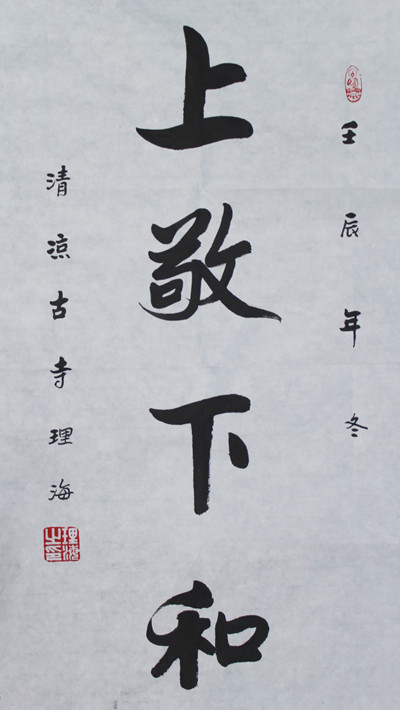 壬辰年冬
上敬下和
清凉古寺理海
理海之印